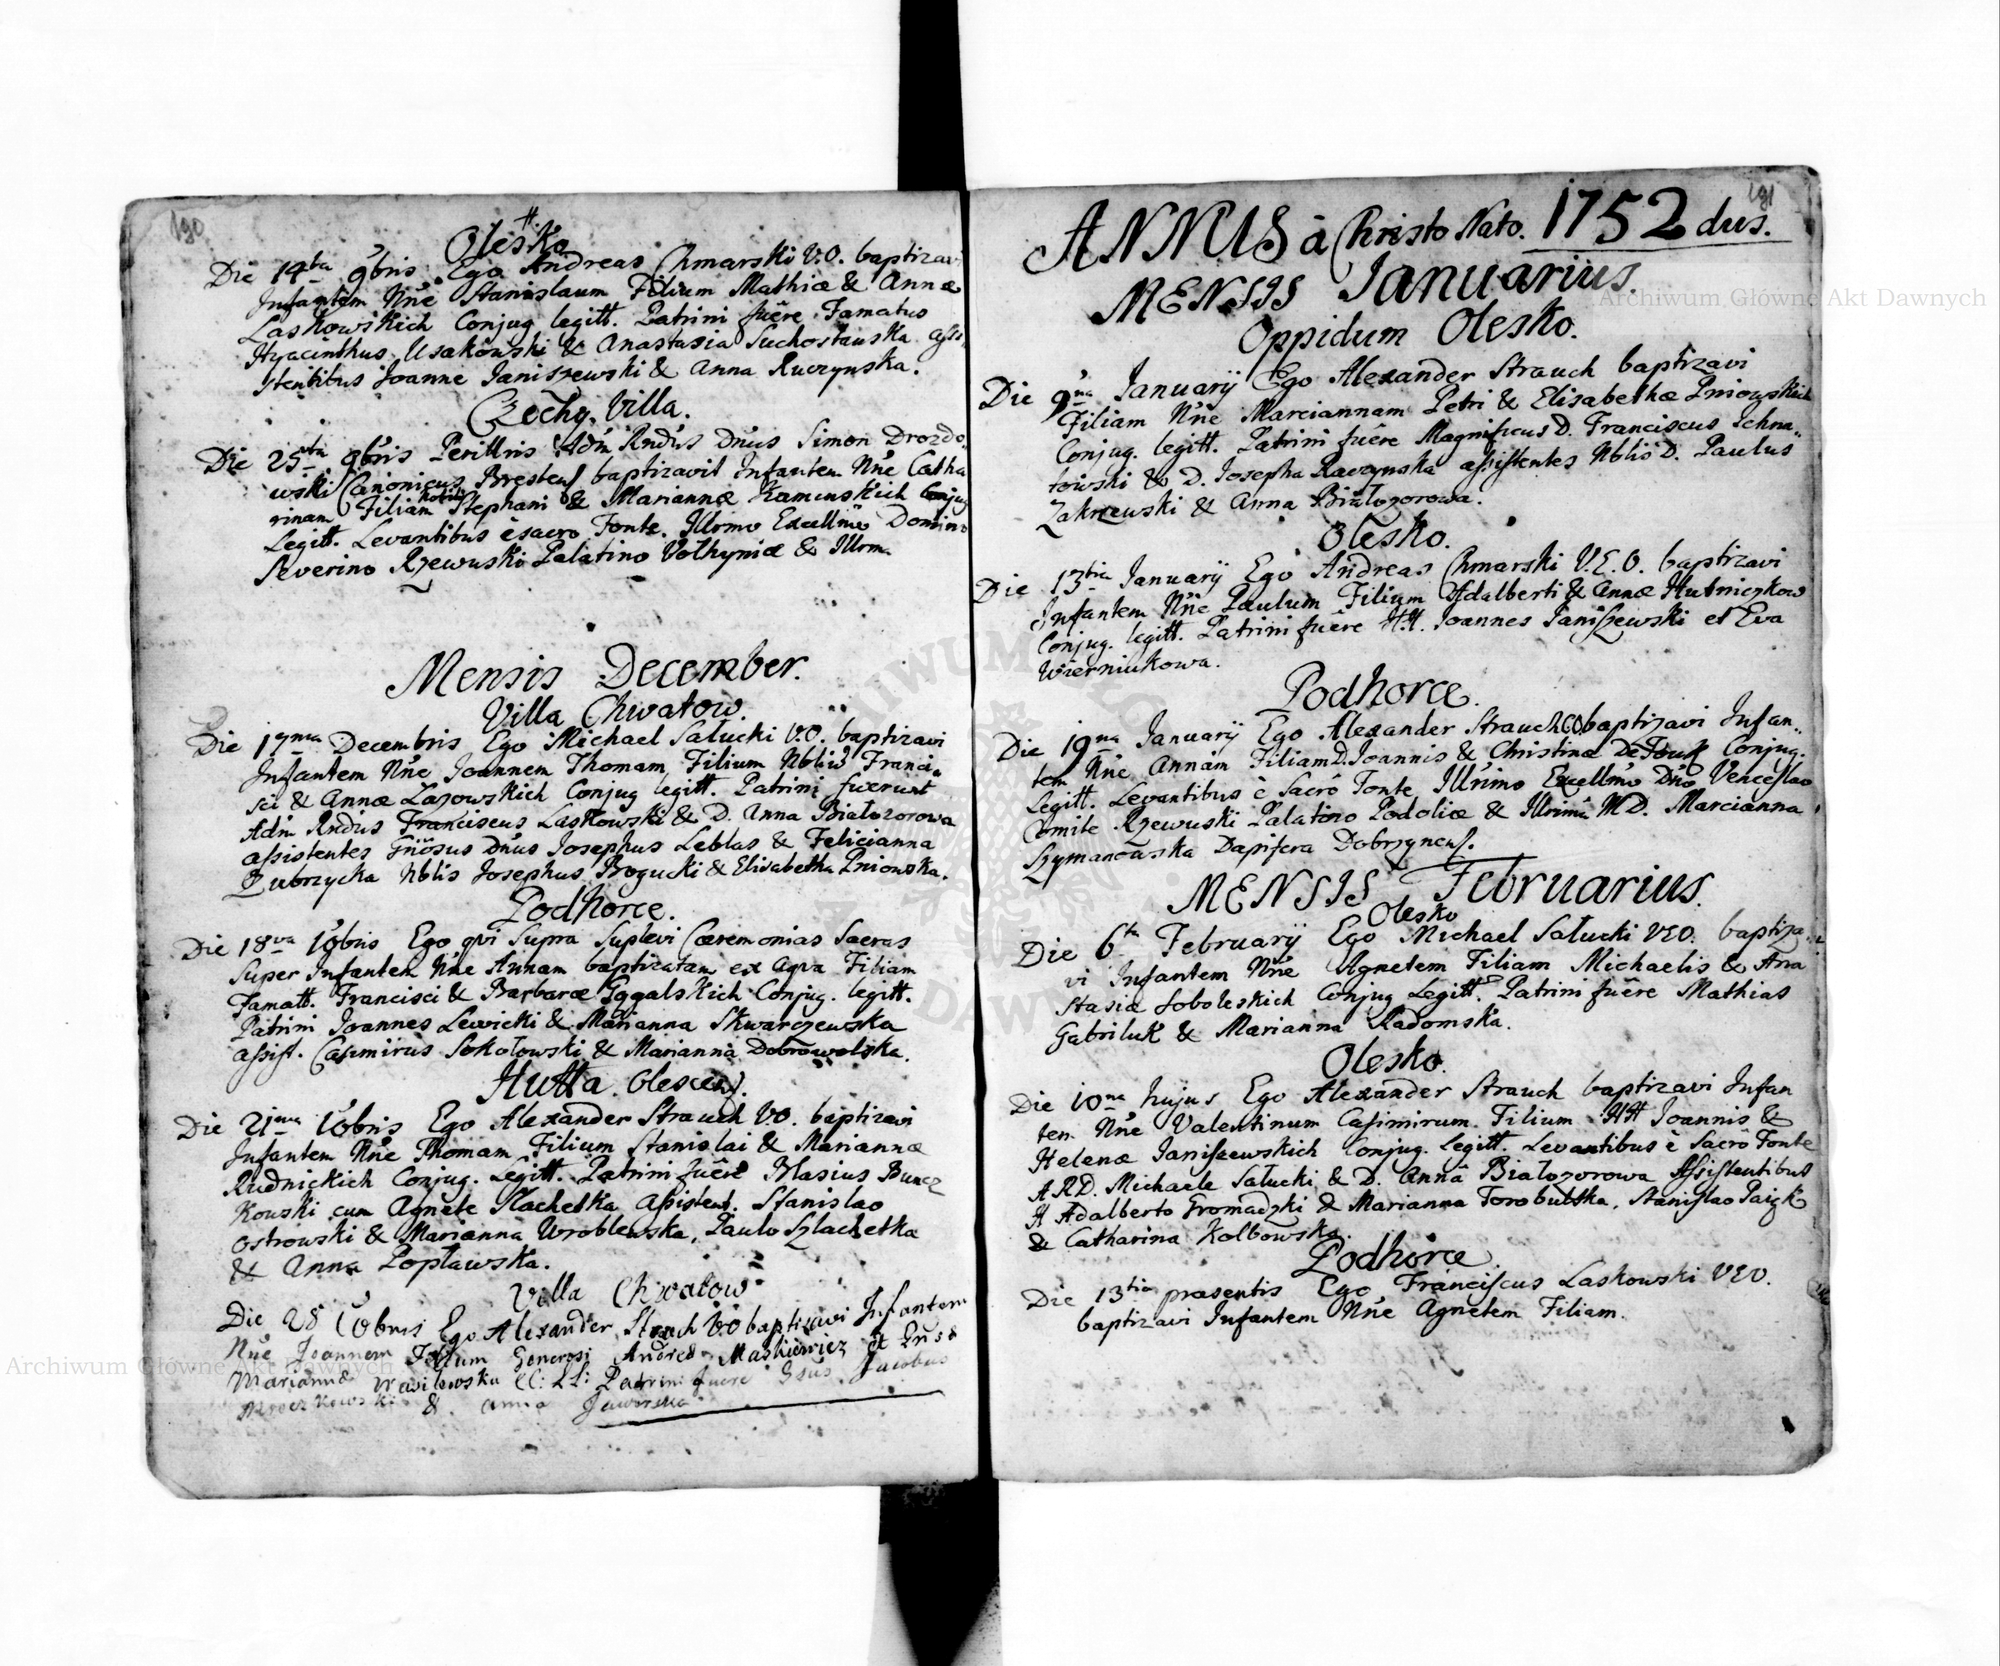 190
Olesko
Die 14ta 9bris Ego Andreas Chmarski V.O. baptizavi
Infantem Nne Stanislaum Filium Mathiæ & Annæ
Laskowskich Conjug legitt. Patrini fuêre Famatus
Hyacinthus Usakowski & Anastasia Suchostauska assi
stentibus Joanne Janiszewski & Anna Ruczynska.
Czechy Villa.
Die 25ta 9bris Perillris Adm Rndus Dnus Simon Drozdo
wski Canonicus Bresten baptizavit Infantem Nne Catha
rinam Filiam nobiliu Stephani & Mariannæ Kaminskich Conjug
Legitt. Levantibus è sacro Fonte. Illrmo Excellmo Domino
Severino Rzewuski Palatino Volhyniæ & Illrm.
Mensis December.
Villa Chwatow.
Die 17ma Decembris Ego Michael Sałucki V.O. baptizavi
Infantem Nne Joannem Thomam Filium Nbliu Franci„
sci & Annæ Lasowskich Conjug legitt. Patrini fuerunt
Adm Rndus Franciscus Laskowski & D. Anna Białozorowa
assistentes Gnosus Dnus Josephus Leblas & Felicianna
Zubrzycka Nblis Josephus Bogucki & Elisabetha Pniowska.
Podhorce.
Die 18va 10bris Ego qvi Supra Suplevi Cæremonias Sacras
Super Infantem Nne Annam baptizatam ex Aqva Filiam
Famatt. Francisci & Barbaræ Gggalskich Conjug. legitt.
Patrini Joannes Lewicki & Marianna Skwarczewska
assist. Casimirus Sokołowski & Marianna Dobrowolska.
Hutta Olescen.
Die 21ma 10bris Ego Alexander Strauch V.O. baptizavi
Infantem Nne Thomam Filium Stanislai & Mariannæ
Rudnickich Conjug. Legitt. Patrini fuêre Blasius Buncz
Kowski cum Agnete Slachetka Assistent. Stanislao
Ostrowski & Marianna Wroblewska, Paulo Szlachetka
& Anna Popławska.
Villa Chwatow
Die 28 10bris Ego Alexander Strach V.O baptizavi Infantem
Nne Joannem Filium Generosi Andreæ Maskiewicz et Gnsæ
Mariannæ Wasilewska CC: LL: Patrini fuere Gsus Jacobus
& Anna Jaworska
191
ANNUS à Christo Nato. 1752 dus.
MENSIS Januarius.
Oppidum Olesko.
Die 9na Januarij Ego Alexander Strauch baptizavi
Filiam Nne Marciannam Petri & Elisabethæ Pniowskich
Conjug. legitt. Patrini fuêre Magnificus D. Franciscus Ichna„
towski & D. Josepha Raczynska assistentes Nblis D. Paulus
Zakrzewski & Anna Białozorowa.
Olesko.
Die 13tia Januarij Ego Andreas Chmarski V.E.O. baptizavi
Infantem Nne Paulum Filium Adalberti & Annæ Hutniczkow
Conjug. legitt. Patrini fuêre H.H. Joannes Janiszewski et Eva
Wierniukowa.
Podhorce.
Die 19na Januarij Ego Alexander Strauch CO baptizavi Infan„
tem Nne Annam Filiam D. Joannis & Christinæ De Fouk Conjug.
legitt. Levantibus è Sacrô Fonte Illrimo Excellmo Dno Venceslao
Comite Rzewuski Palatino Podoliæ & Illrima MD. Marcianna
Szymanowska Dapifera Dobrzynens.
MENSIS Februarius.
Olesko
Die 6ta Februarij Ego Michael Sałucki VEO. baptiza
vi Infantem Nne Agnetem Filiam Michaelis & Ana
stasiæ Soboleskich Conjug Legitt. Patrini fuêre Mathias
Gabriluk & Marianna Radomska.
Olesko.
Die 10ma hujus Ego Alexander Strauch baptizavi Infan
tem Nne Valentinum Casimirum Filium HH Joannis &
Helenæ Janiszewskich Conjug. legitt. Levantibus è Sacrô Fonte
ARD. Michaele Sałucki & D. Annâ Białozorowa Assistentibus
H Adalberto Gromadzki & Marianna Torobulska, Stanislao Paizk
& Catharina Kolbowska.
Podhorce
Die 13tia præsentis Ego Franciscus Laskowski VEO.
baptizavi Infantem Nne Agnetem Filiam.
Archiwum Główne Akt Dawnych
Archiwum Główne Akt Dawnych